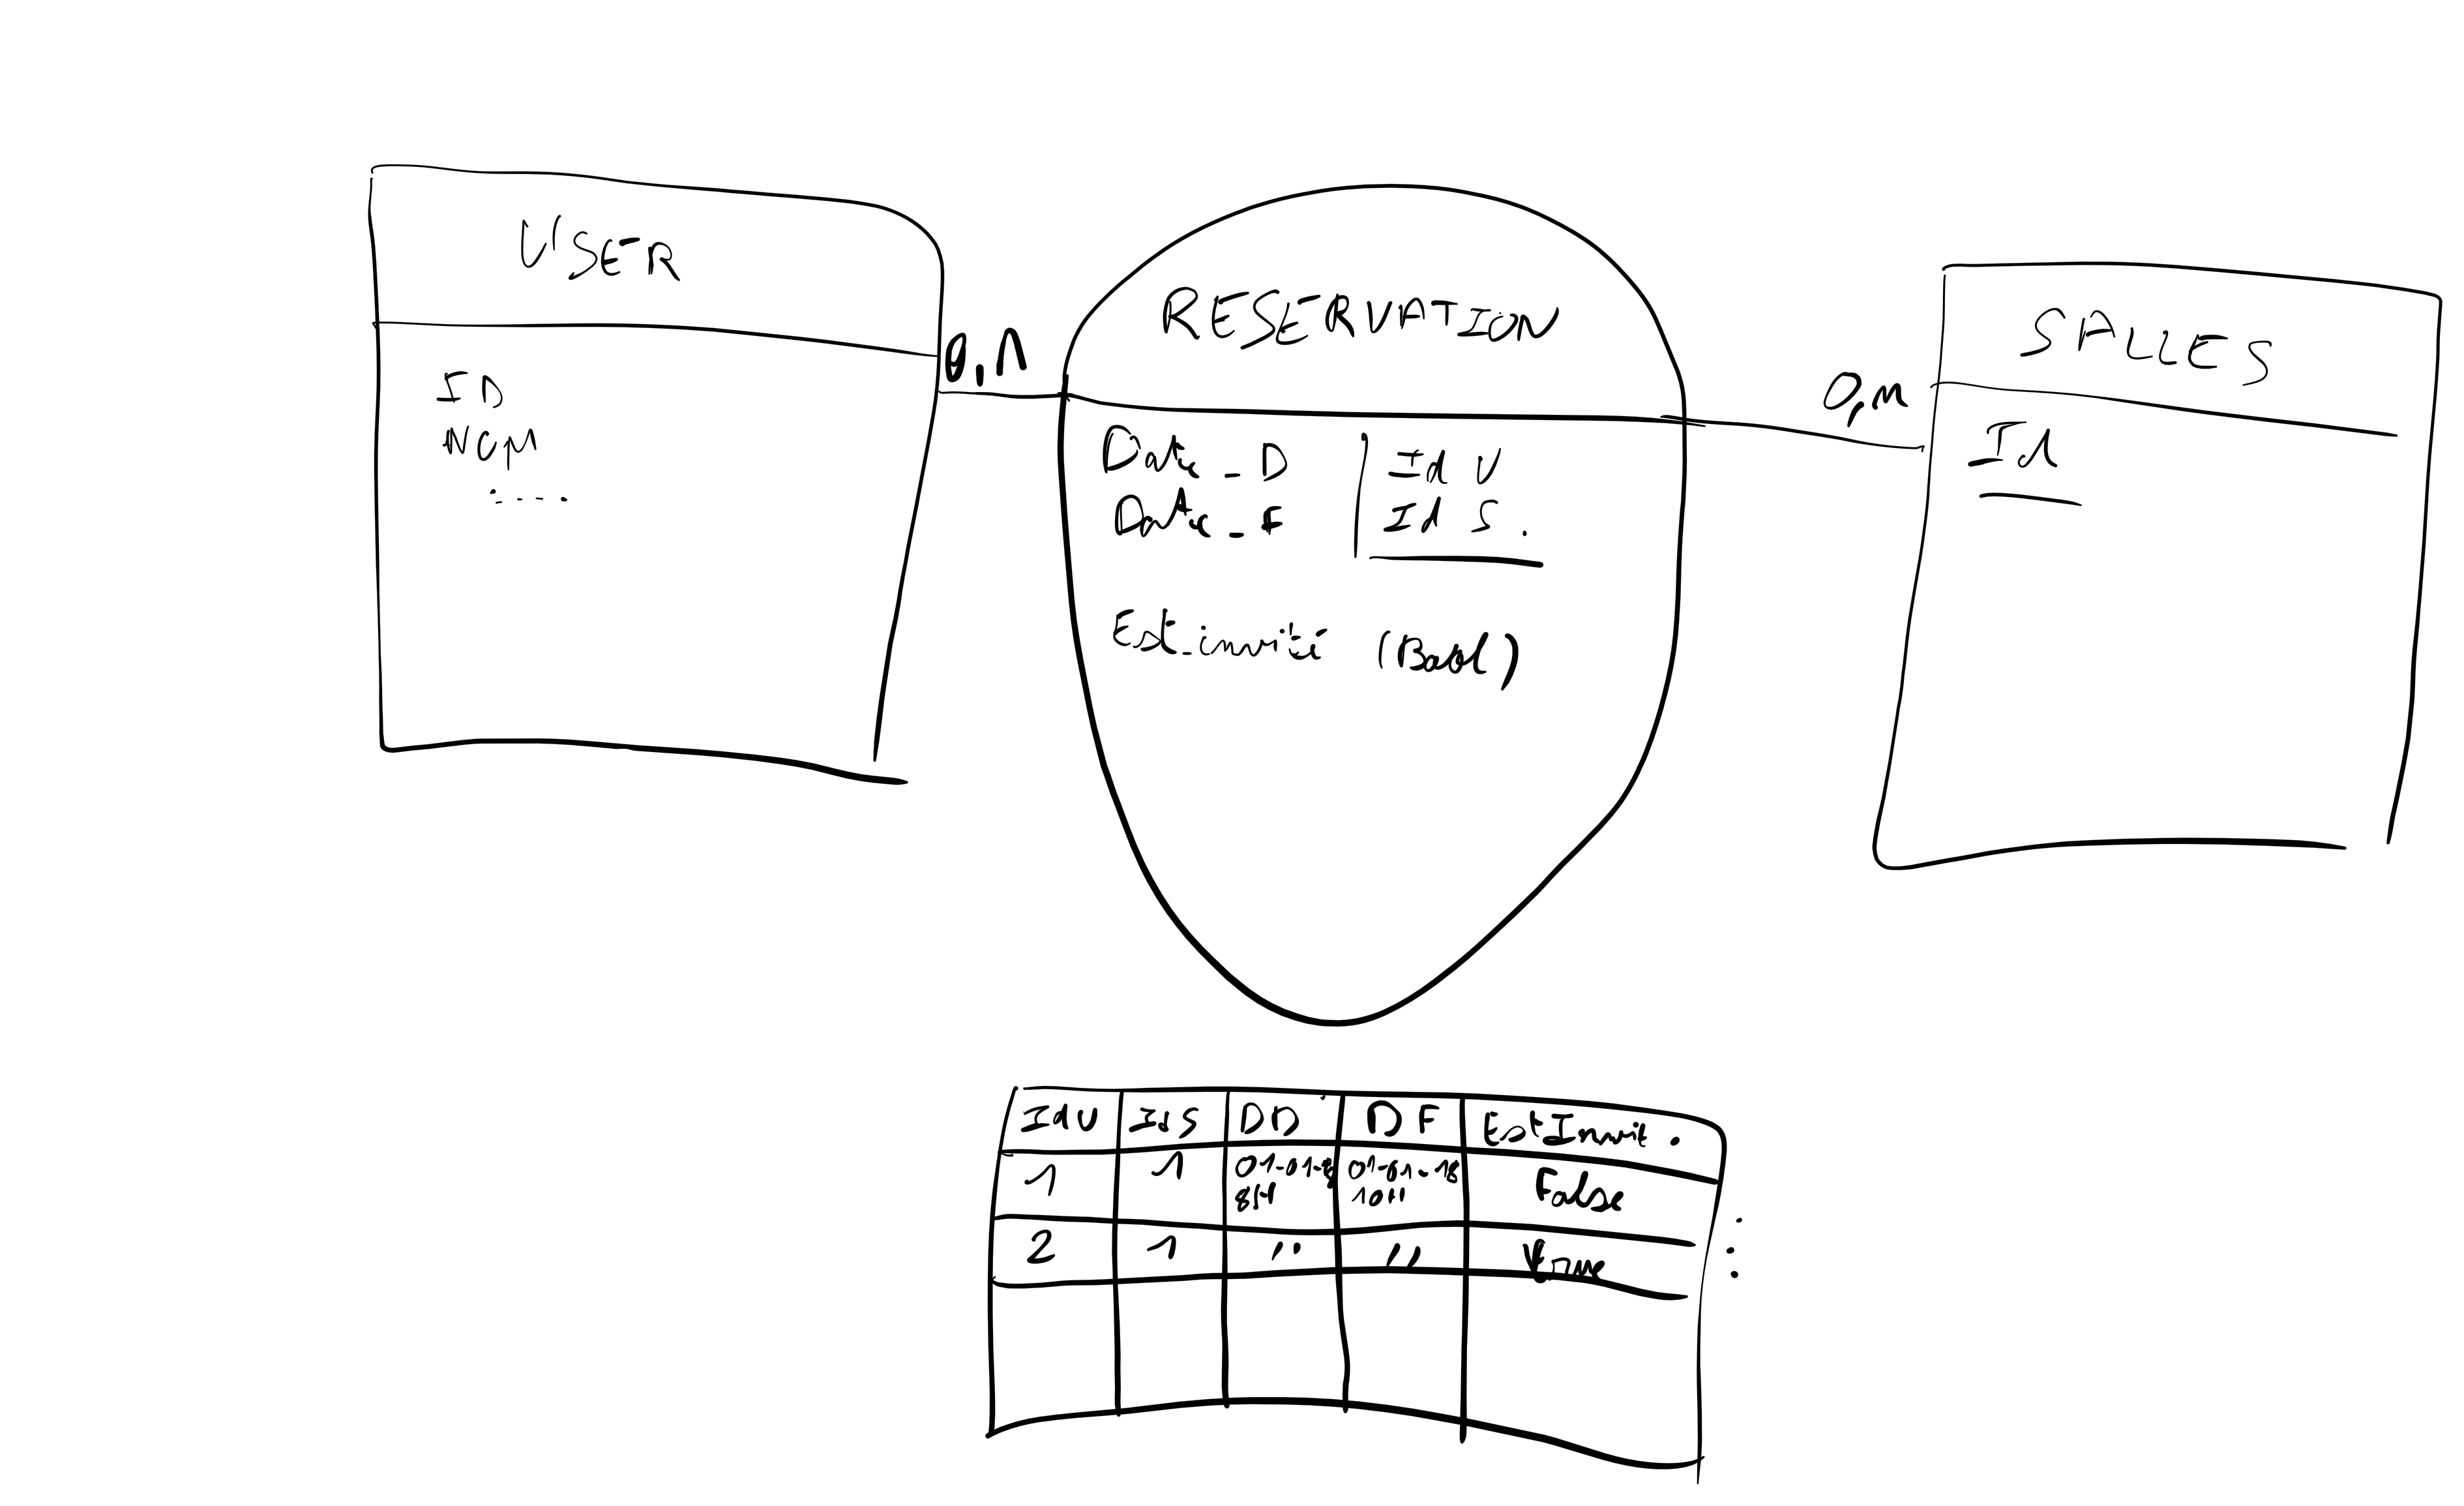 USER
ID
NOM
.....
0,n
RESERVATION
Date_D | Id U
Date_F | Id S.
Est_invité (Bool)
0,n
SALLES
Id
IdU IdS DD DF EstInvit.
1 1 01-01-18 8H 01-01-18 10H False
2 1 " " Vrai